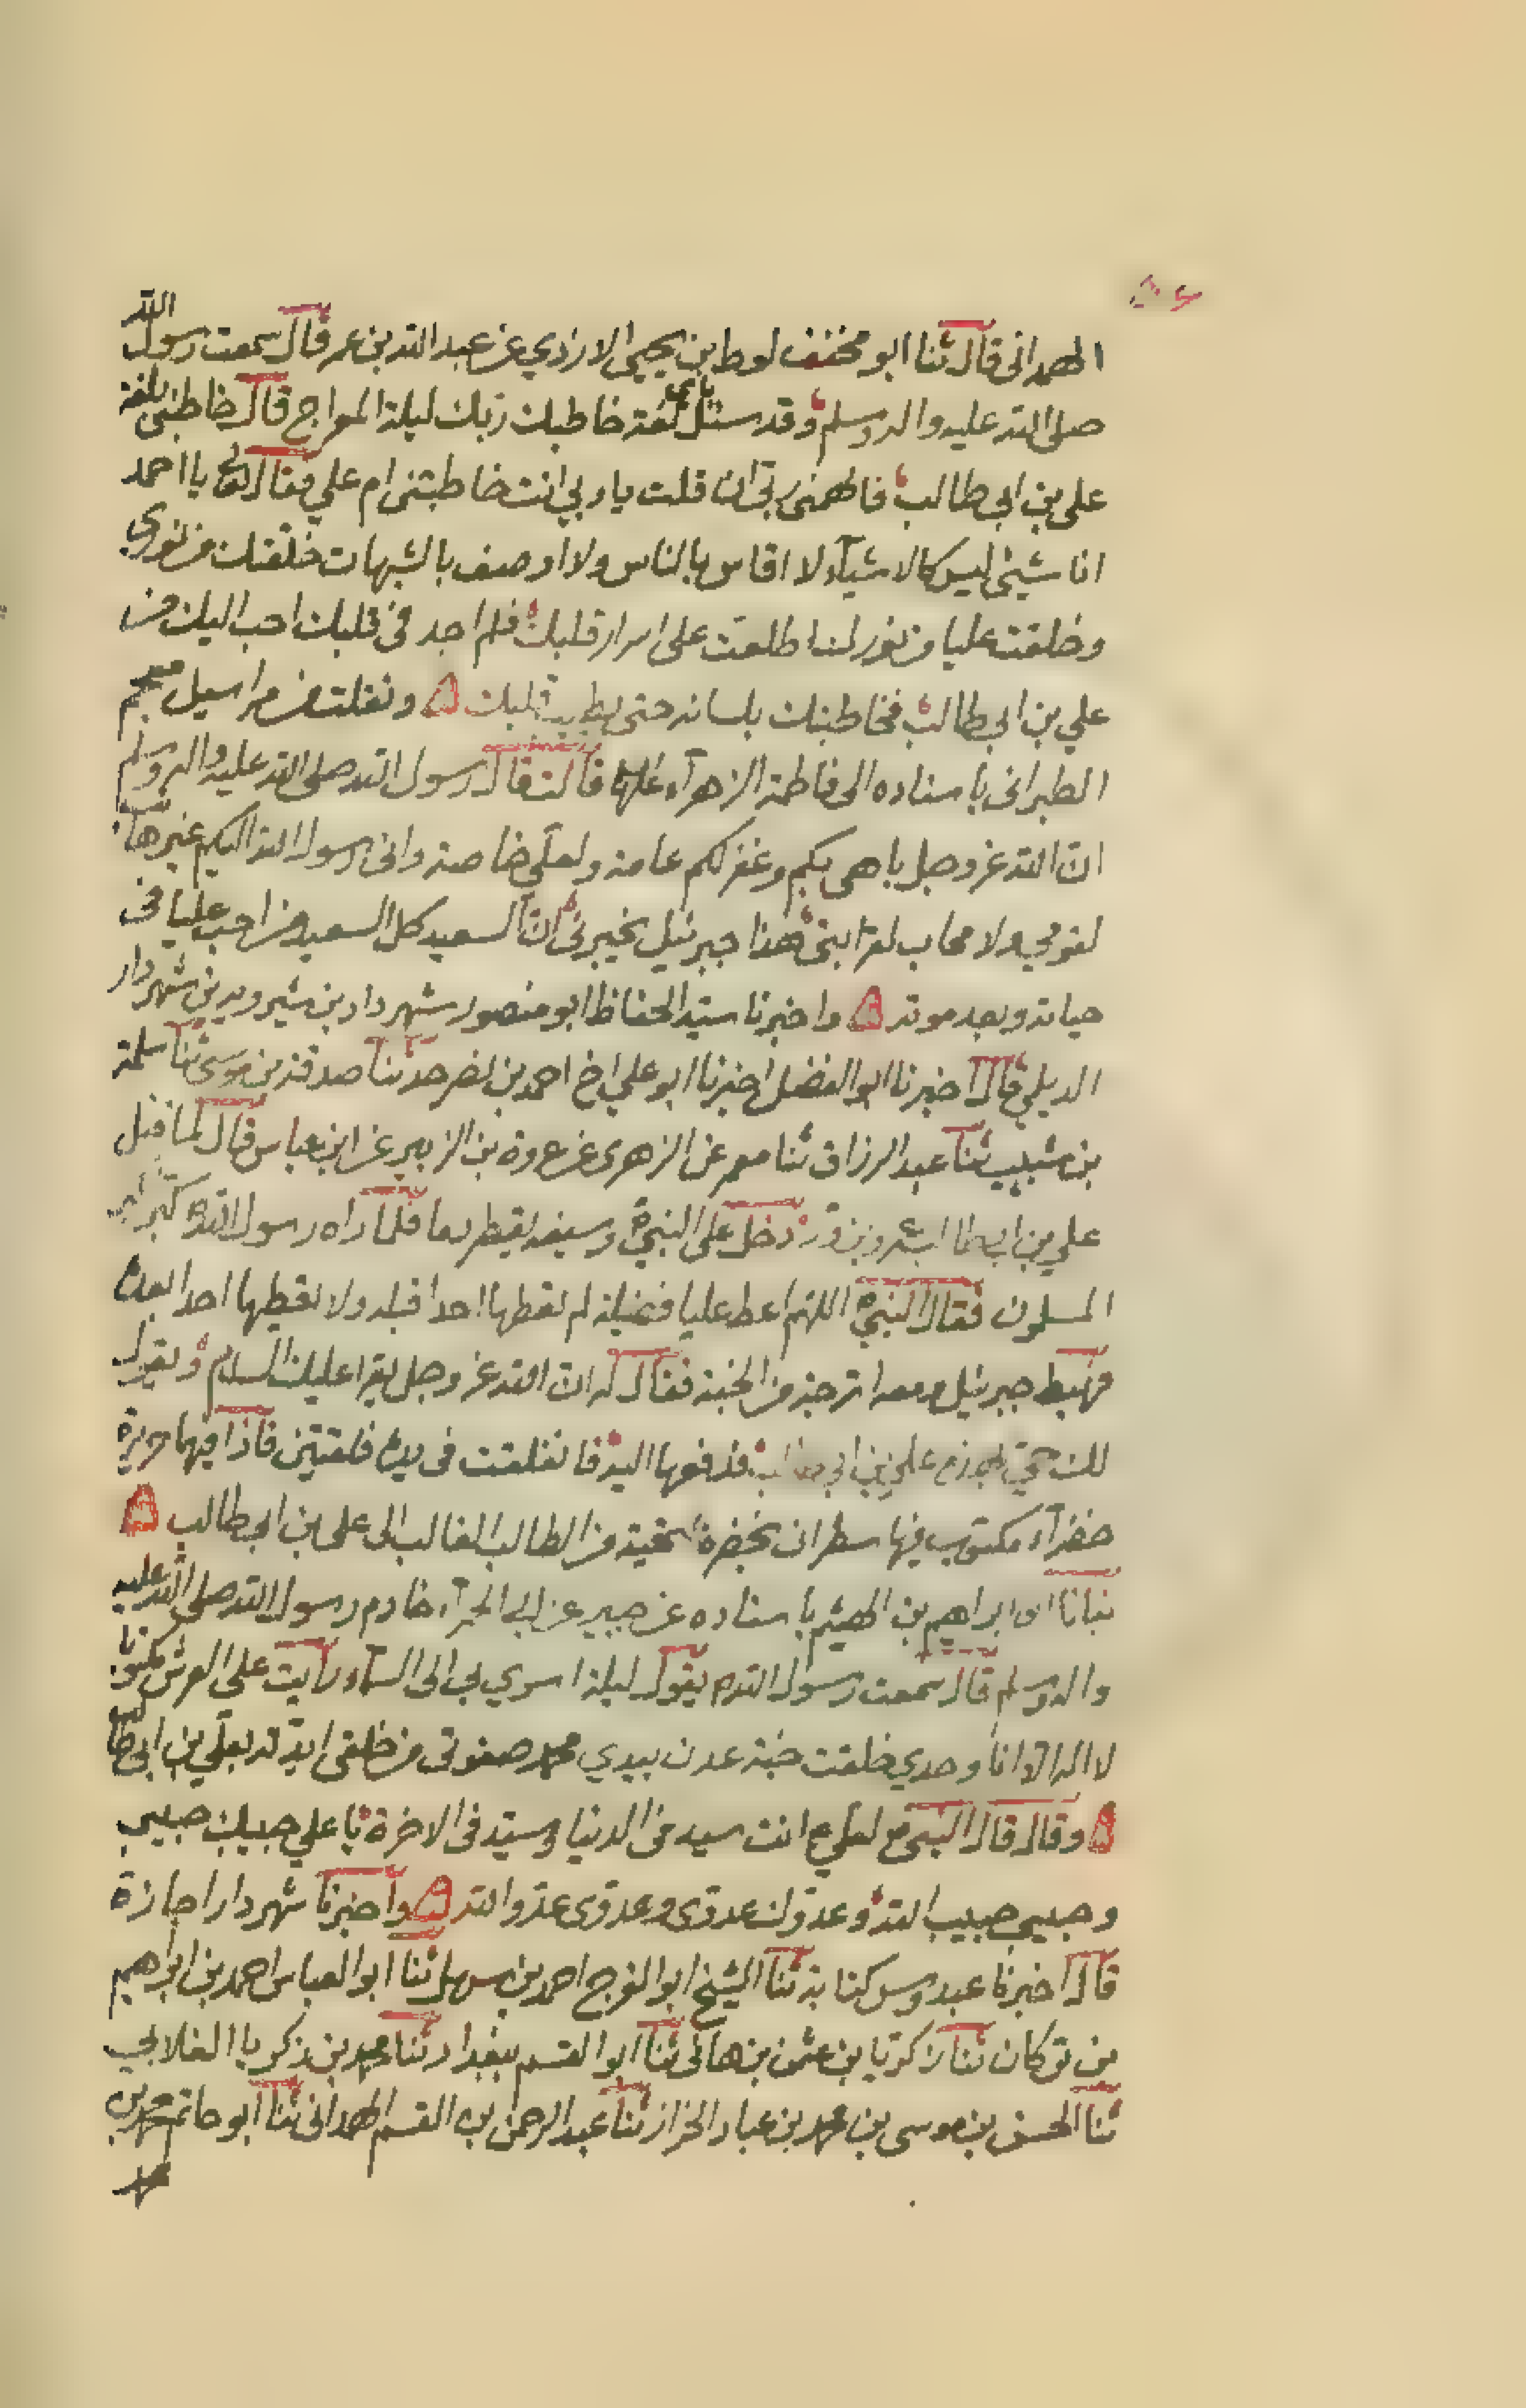 الهمداني قال ثنا ابو مخنف لوط بن يحيى الازدي عن عبد الله بن عمر قال سمعت رسول الله
صلى الله عليه واله وسلم وقد سئل باي لغة خاطبك ربك ليلة المعراج قال خاطبني بلغة
علي بن ابي طالب فالهمني ربي ان قلت يا ربي انت خاطبتني ام علي فقال لي يا احمد
انا شيئ ليس كالاشيآء لا اقاس بالناس ولا اوصف بالشبهات خلقتك من نوري
وخلقت عليا من نورك اطلعت على اسرار قلبك فلم اجد في قلبك احب اليك من
علي بن ابي طالب فخاطبتك بلسانه حتى يطيب قلبك ونقلت من مراسيل معجم
الطبراني باسناده الى فاطمة الزهرآء عليها قالت قال رسول الله صلى الله عليه واله وسلم
ان الله عز وجل باهى بكم وغفر لكم عامة ولعلي خاصة واني رسول الله اليكم غير هائب
لقومي ولا محاب لقرابتي هذا جبرئيل يخبرني ان السعيد كل السعيد من احب عليا في
حياته وبعد موته واخبرنا سيد الحفاظ ابو منصور شهردار بن شيرويه بن شهردار
الديلمي قال اخبرنا ابو الفضل اخبرنا ابو علي اخ احمد بن نصر حدثنا صدقة بن موسى ثنا سلمة
بن شبيب ثنا عبد الرزاق ثنا معمر عن الزهري عن عروة بن الزبير عن ابن عباس قال لما قتل
علي بن ابي طا عمرو بن ود دخل على النبي وسيفه يقطر دما فلما راه رسول الله كبر
المسلمون فقال النبي اللهم اعط عليا فضيلة لم تعطها احدا قبله ولا تعطيها احدا بعده
فهبط جبرئيل ومعه اترجة من الجنة فقال له ان الله عز وجل يقرا عليك السلام ويقول
لك حي بهذه علي بن ابي طالب فدفعها اليه فانفلقت في يده فلقتين فاذا فيها حريرة
خضرآء مكتوب فيها سطران بخضرة تحية من الطالب الغالب الى علي بن ابي طالب
نبانا ابن ابراهيم بن الهيثم باسناده عن جبير عن ابي الحمرآء خادم رسول الله صلى الله عليه
واله وسلم قال سمعت رسول الله يقول ليلة اسري بي الى السمآء رايت على العرش مكتوبا
لا اله الا انا وحدي خلقت جنة عدن بيدي محمد صفوتي من خلقي ايدته بعلي بن ابي طا
وقال قال النبي لعلي انت سيد في الدنيا وسيد في الاخرة يا علي حبيبك حبيبي
وحبيبي حبيب الله وعدوك عدوي وعدوي عدو الله واخبرنا شهردار اجازة
قال اخبرنا عبدوس كتابة ثنا الشيخ ابو الفرج احمد بن سهل ثنا ابو العباس احمد بن ابراهيم
بن تركان ثنا زكريا بن عثمن بن هاني ثنا ابو القسم ببغداد ثنا محمد بن زكريا الغلابي
ثنا الحسن بن موسى بن محمد بن عباد الخزاز ثنا عبد الرحمن بن القسم الهمداني ثنا ابو حاتم محمد بن
محمد